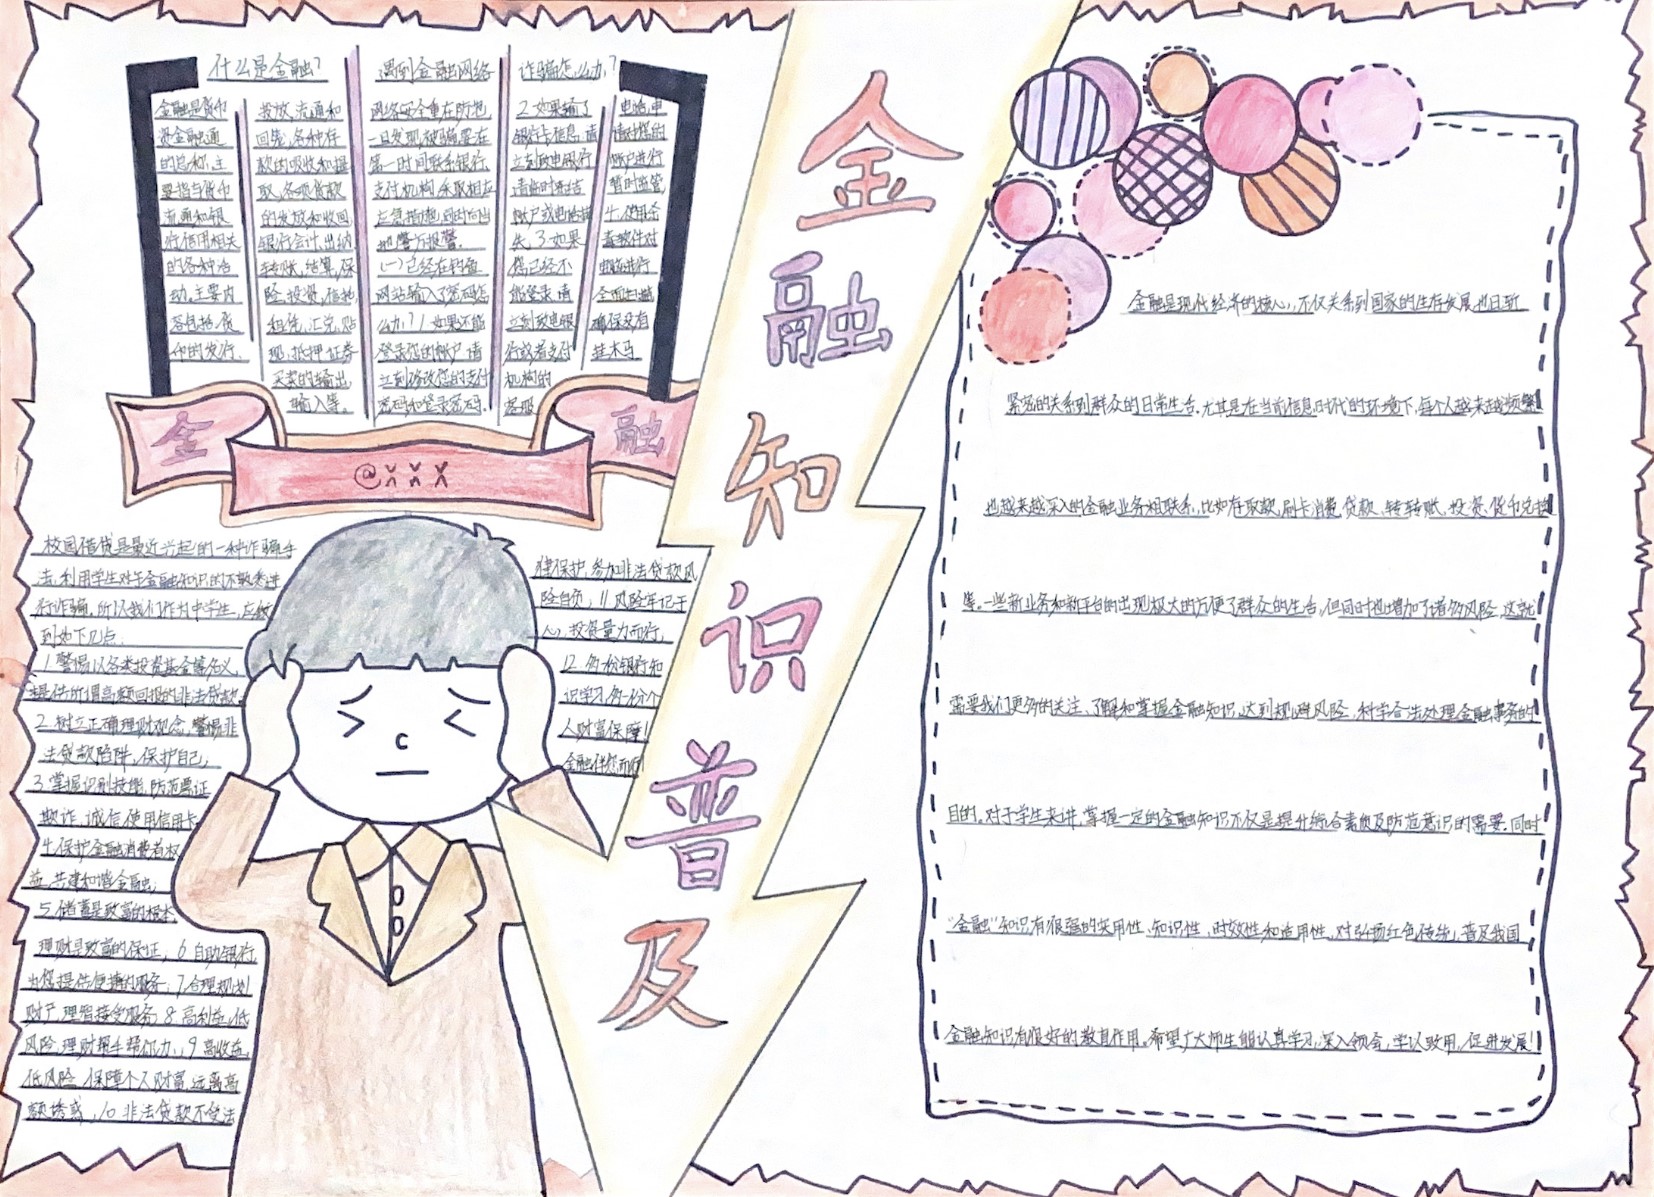 什么是金融？
金融是货币
资金融通
的总称，主
要指与货币
流通和银
行信用相关
的各种活
动，主要内
容包括：货
币的发行、
投放、流通和
回笼，各种存
款的吸收和提
取，各项贷款
的发放和收回
银行会计、出纳
转账、结算、保
险、投资、信托、
租凭、汇兑、贴
现、抵押、证券
买卖的输出
输入等。
遇到金融网络
诈骗怎么办？
网络安全重在防范
一旦发现被骗要在
第一时间联系银行、
支付机构采取相应
应急措施，同时向当
地警方报警。
(一)已经在钓鱼
网站输入了密码怎
么办？1.如果还能
登录您的账户，请
立刻修改您的支付
密码和登录密码，
2.如果输了
银行卡信息，请
立刻致电银行
请临时冻结
账户或电话挂
失，3.如果
您已经不
能登录，请
立刻致电银
行或者支付
机构的
客服
电话，申
请对您的
账户进行
暂时监管
4.使用杀
毒软件对
电脑进行
全面扫描
确保没有
挂木马
金
融
@XXX
金
融
知
识
普
及
校园借贷是最近兴起的一种诈骗手
法，利用学生对于金融知识的不敏悉进
行诈骗，所以我们作为中学生，应做
到如下几点
1.警惕以各类投资基金等名义，
提供所谓高额回报的非法贷款
2.树立正确理财观念，警惕非
法贷款陷阱，保护自己，
3.掌握识别技能，防范票证
欺诈，诚信使用信用卡
4.保护金融消费者权
益，共建和谐金融，
5.储蓄是致富的根本，
理财是致富的保证，6.自助银行，
为您提供便捷的服务；7.合理规划
财产，理智接受服务 8.高利益，低
风险，理财帮手帮你力，9.高收益，
低风险，保障个人财富，远离高
额诱惑，10.非法贷款不受法
律保护，参加非法贷款风
险自负；11.风险牢记于
心，投资量力而行，
12.多份银行知
识学习，多份个
人财富保障！
金融伴您而行
金融是现代经济的核心，不仅关系到国家的生存发展，也日趋
紧密的关系到群众的日常生活。尤其是在当前信息时代的环境下，每个人越来越频繁
也越来越深入的金融业务相联系，比如存取款，刷卡消费，贷款、转转账、投资、货币兑换
等。一些新业务和新平台的出现极大的方便了群众的生活，但同时也增加了诸多风险，这就
需要我们更多的关注、了解和掌握金融知识，达到规避风险，科学合法处理金融事务的
目的。对于学生来讲，掌握一定的金融知识不仅是提升综合素质及防范意识的需要。同时
“金融”知识有很强的实用性，知识性，时效性和适用性，对弘扬红色传统，普及我国
金融知识有很好的教育作用。希望广大师生能认真学习，深入领会，学以致用，促进发展！